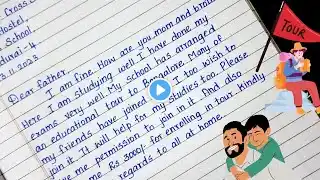 Cross
Hostel
School,
durai-4.
3.11.2023
Dear father,
I am fine. How are you mom and
Here I am studying well. I have done my
exams very well. My school has arranged
an educational tour to Bangalore. Many of
my friends have joined I too wish to
join it. It will help for my studies too. Please
me permission to join in it. And also
me Rs 3000/- for enrolling in tour. Kindly
regards to all at home.
TOUR